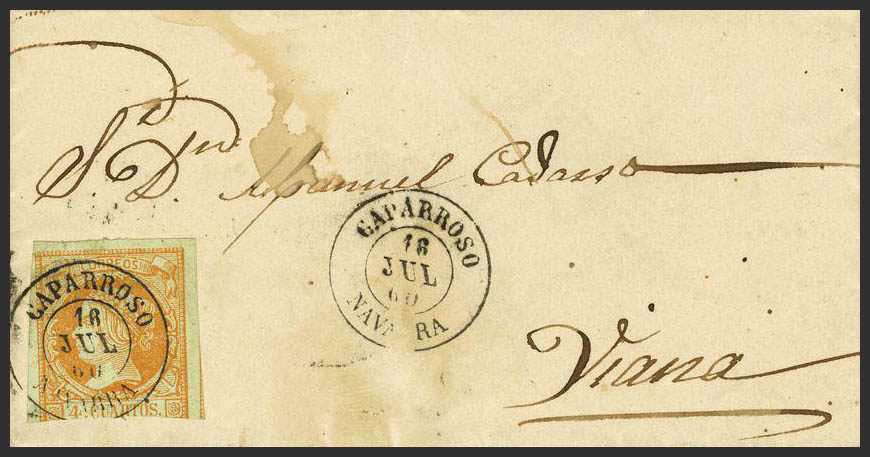 Sr. Dn. Manuel Cadarso
CAPARROSO
16
JUL
60
NAVARRA
CORREOS
CAPARROSO
16
JUL
60
NAVARRA
4 CUARTOS.
Viana